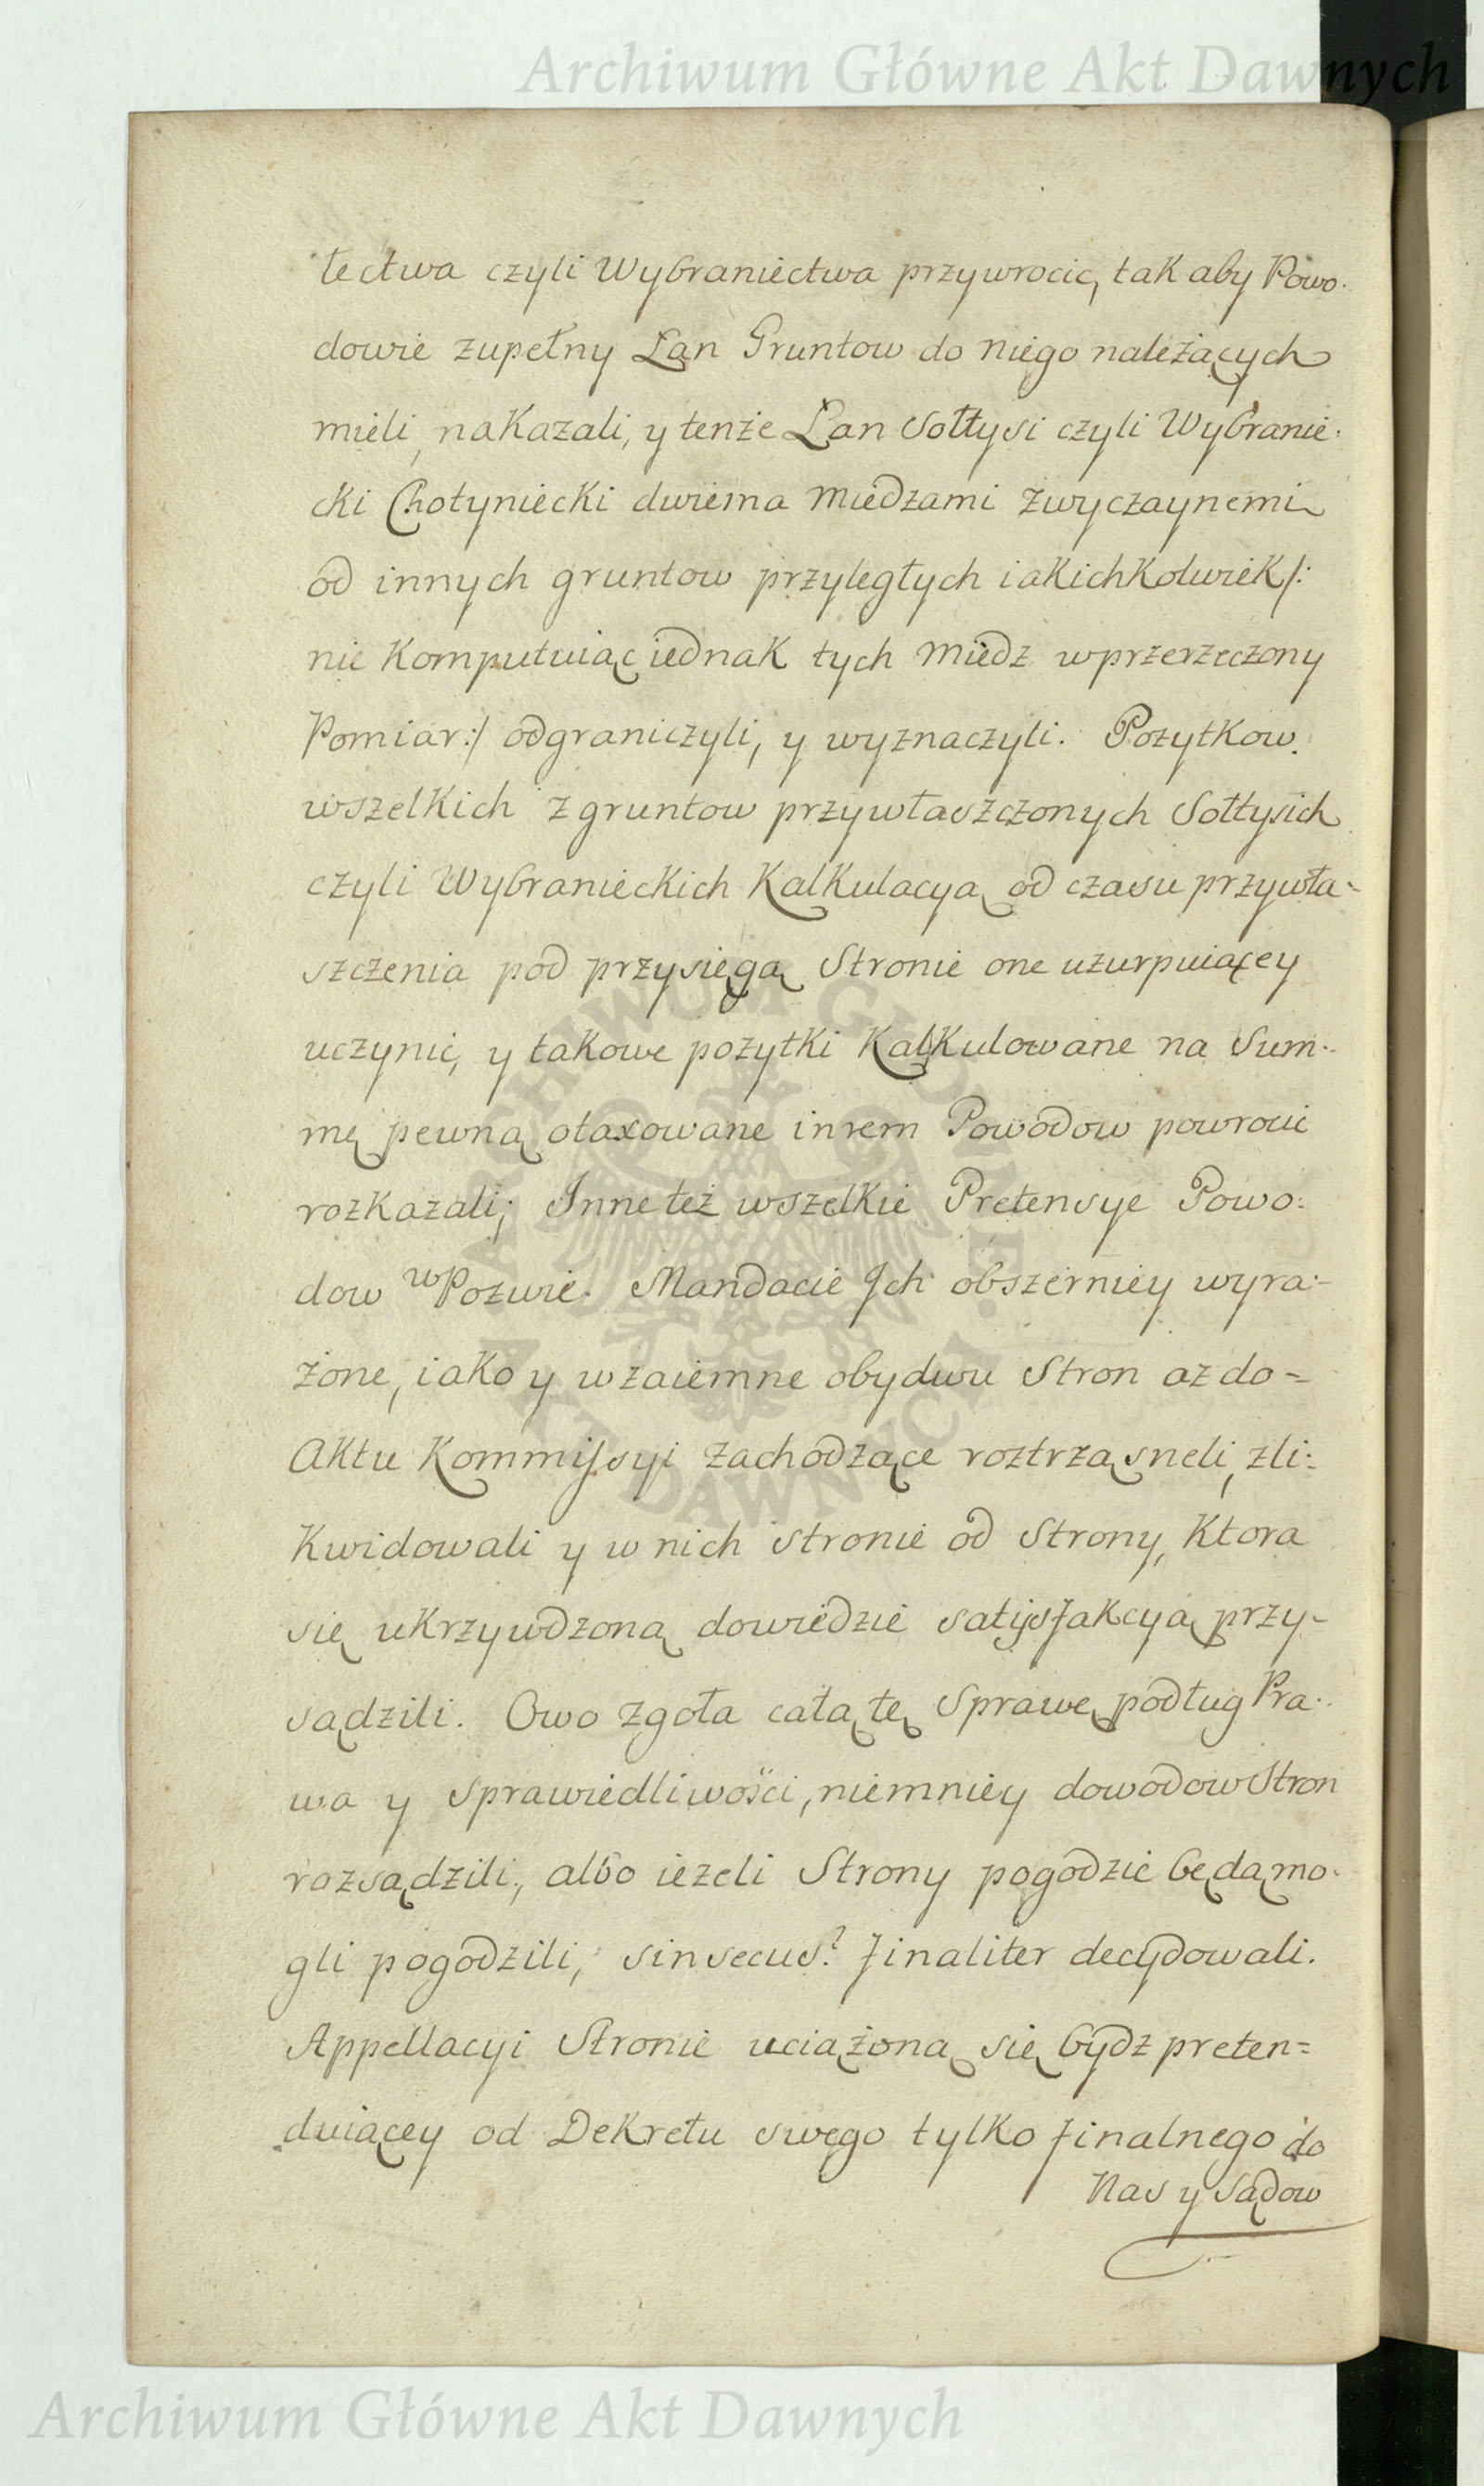 Archiwum Główne Akt Dawnych
tectwa czyli Wybraniectwa przywrocic, tak aby Powo.
dowie zupełny Łan Gruntow do niego należących
mieli, nakazali, y tenże Łan Sołtysi czyli Wybranie.
cki Chotyniecki dwiema miedzami zwyczaynemi
od innych gruntow przyległych iakichkolwiek /:
nie komputuiąc iednak tych miedz wprzerzeczony
Pomiar :/ odgraniczyli, y wyznaczyli. Pozytkow
wszelkich z gruntow przywłaszczonych Sołtysich
czyli Wybranieckich Kalkulacyą od czasu przywła-
szczenia pod przysięgą Stronie one uzurpuiącey
uczynic, y takowe pozytki Kalkulowane na Sum-
mę pewną otaxowane in rem Powodow powrocic
rozkazali; Inne też wszelkie Pretensye Powo:
dow w Pozwie. Mandacie Ich obszerniey wyra:
żone, iako y wzaiemne obydwu Stron az do =
Aktu Kommissyi zachodzące roztrząsneli, zli:
kwidowali y w nich stronie od Strony, ktora
się ukrzywdzoną dowiedzie satysfakcyą przy-
sądzili. Owo zgoła całą tę Sprawę podług Pra.
wa y sprawiedliwości, niemniey dowodow Stron
rozsądzili, albo iezeli Strony pogodzic będą mo.
gli pogodzili, sin secus? finaliter decydowali.
Appellacyi Stronie uciążoną się bydz preten=
duiącey od Dekretu swego tylko finalnego do
Nas y Sądow
Archiwum Główne Akt Dawnych
ARCHIWUM GŁÓWNE AKT DAWNYCH